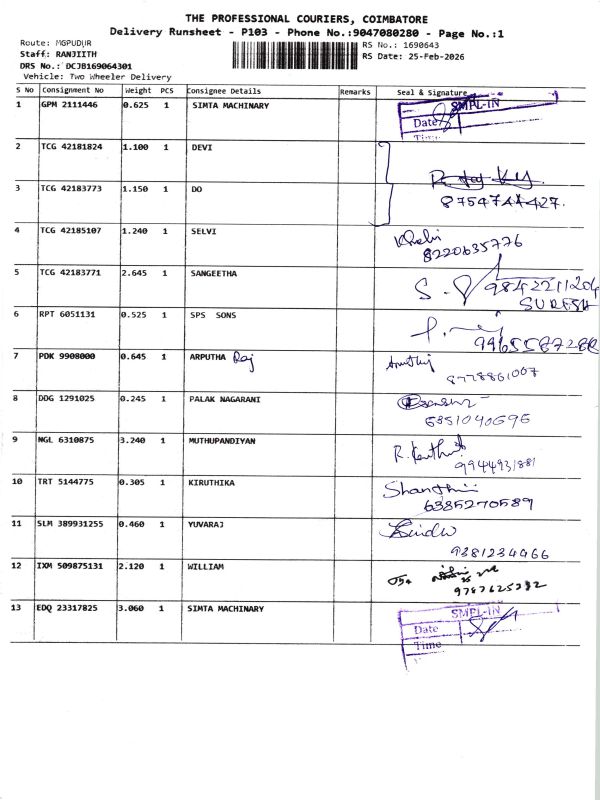 THE PROFESSIONAL COURIERS, COIMBATORE
Delivery Runsheet - P103 - Phone No.:9047080280 - Page No.:1
Route: MGPUDUR
Staff: RANJIITH
DRS No.: DCJB169064301
Vehicle: Two Wheeler Delivery
RS No.: 1690643
RS Date: 25-Feb-2026
S No Consignment No Weight PCS Consignee Details Remarks Seal & Signature
1 GPM 2111446 0.625 1 SIMTA MACHINARY SMPL-IN
Date
Time
2 TCG 42181824 1.100 1 DEVI
3 TCG 42183773 1.150 1 DO
8754744427.
4 TCG 42185107 1.240 1 SELVI
8220635776
5 TCG 42183771 2.645 1 SANGEETHA
9842211204
SURESH
6 RPT 6051131 0.525 1 SPS SONS
7 PDK 9908000 0.645 1 ARPUTHA Raj
8778861007
8 DDG 1291025 0.245 1 PALAK NAGARANI
6351040696
9 NGL 6310875 3.240 1 MUTHUPANDIYAN
9944931881
10 TRT 5144775 0.305 1 KIRUTHIKA Shanthi
6385270589
11 SLM 389931255 0.460 1 YUVARAJ
9381234466
12 IXM 509875131 2.120 1 WILLIAM
13 EDQ 23317825 3.060 1 SIMTA MACHINARY SMPL-IN
Date
Time